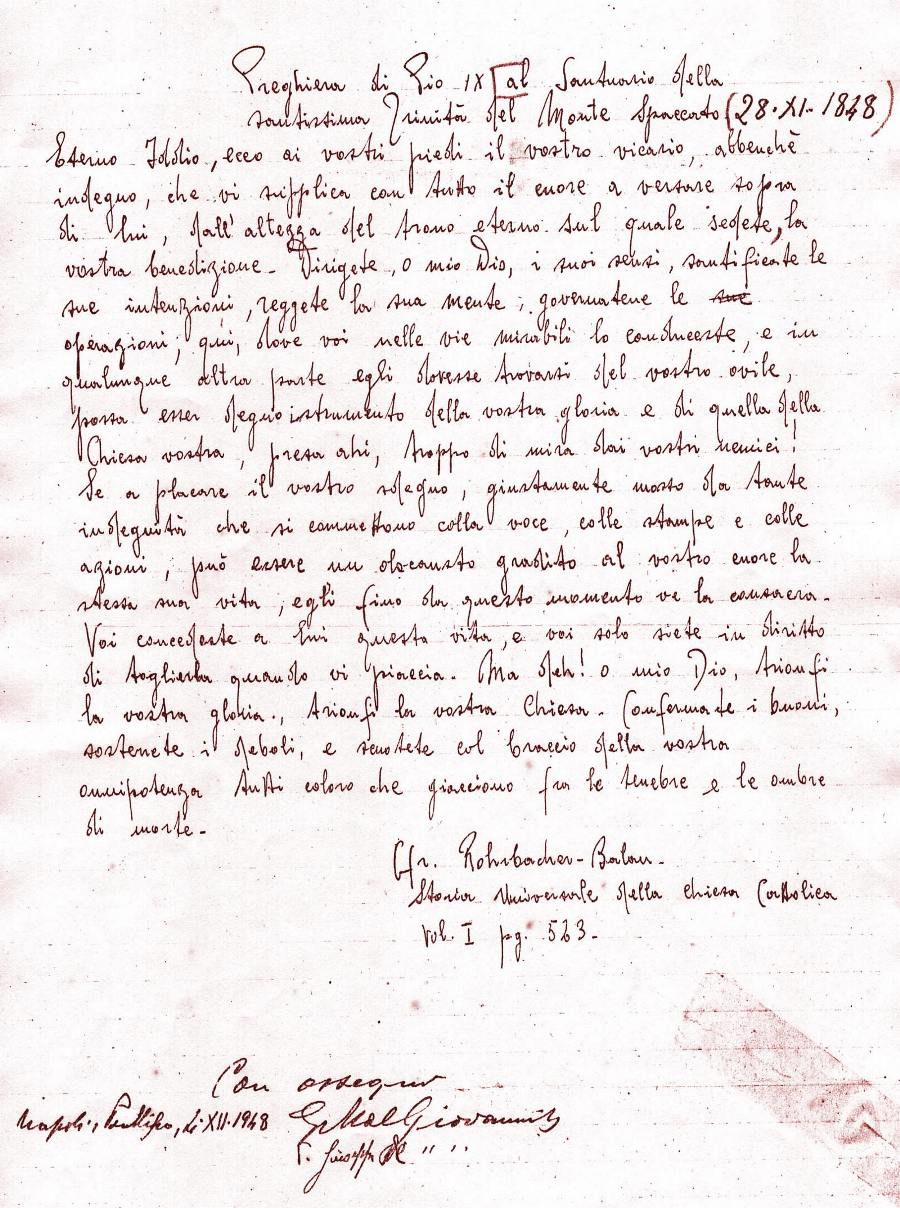 Preghiera di Pio IX al Santuario della
santissima Trinità del Monte Spaccato (28·XI·1848)
Eterno Iddio, ecco ai vostri piedi il vostro vicario, abbenchè
indegno, che vi supplica con tutto il cuore a versare sopra
di lui, dall'altezza del trono eterno sul quale sedete, la
vostra benedizione. Dirigete, o mio Dio, i suoi sensi, santificate le
sue intenzioni, reggete la sua mente; governatene le sue
operazioni; qui, dove voi nelle vie mirabili lo conduceste, e in
qualunque altra parte egli dovesse trovarsi del vostro ovile,
possa esser degno istrumento della vostra gloria e di quella della
Chiesa vostra, presa ahi, troppo di mira dai vostri nemici!
Se a placare il vostro sdegno, giustamente mosso da tante
indegnità che si commettono colla voce, colle stampe e colle
azioni, può essere un olocausto gradito al vostro cuore la
stessa sua vita, egli fino da questo momento ve la consacra.
Voi concedeste a lui questa vita, e voi solo siete in diritto
di toglierla quando vi piaccia. Ma deh! o mio Dio, trionfi
la vostra gloria, trionfi la vostra Chiesa. Confermate i buoni,
sostenete i deboli, e scuotete col braccio della vostra
omnipotenza tutti coloro che giacciono fra le tenebre e le ombre
di morte.
Cfr. Rohrbacher-Balan.
Storia Universale della Chiesa Cattolica
Vol. I pg. 523.
Con ossequio
Napoli, XII·1948 Giovanni
Giuseppe